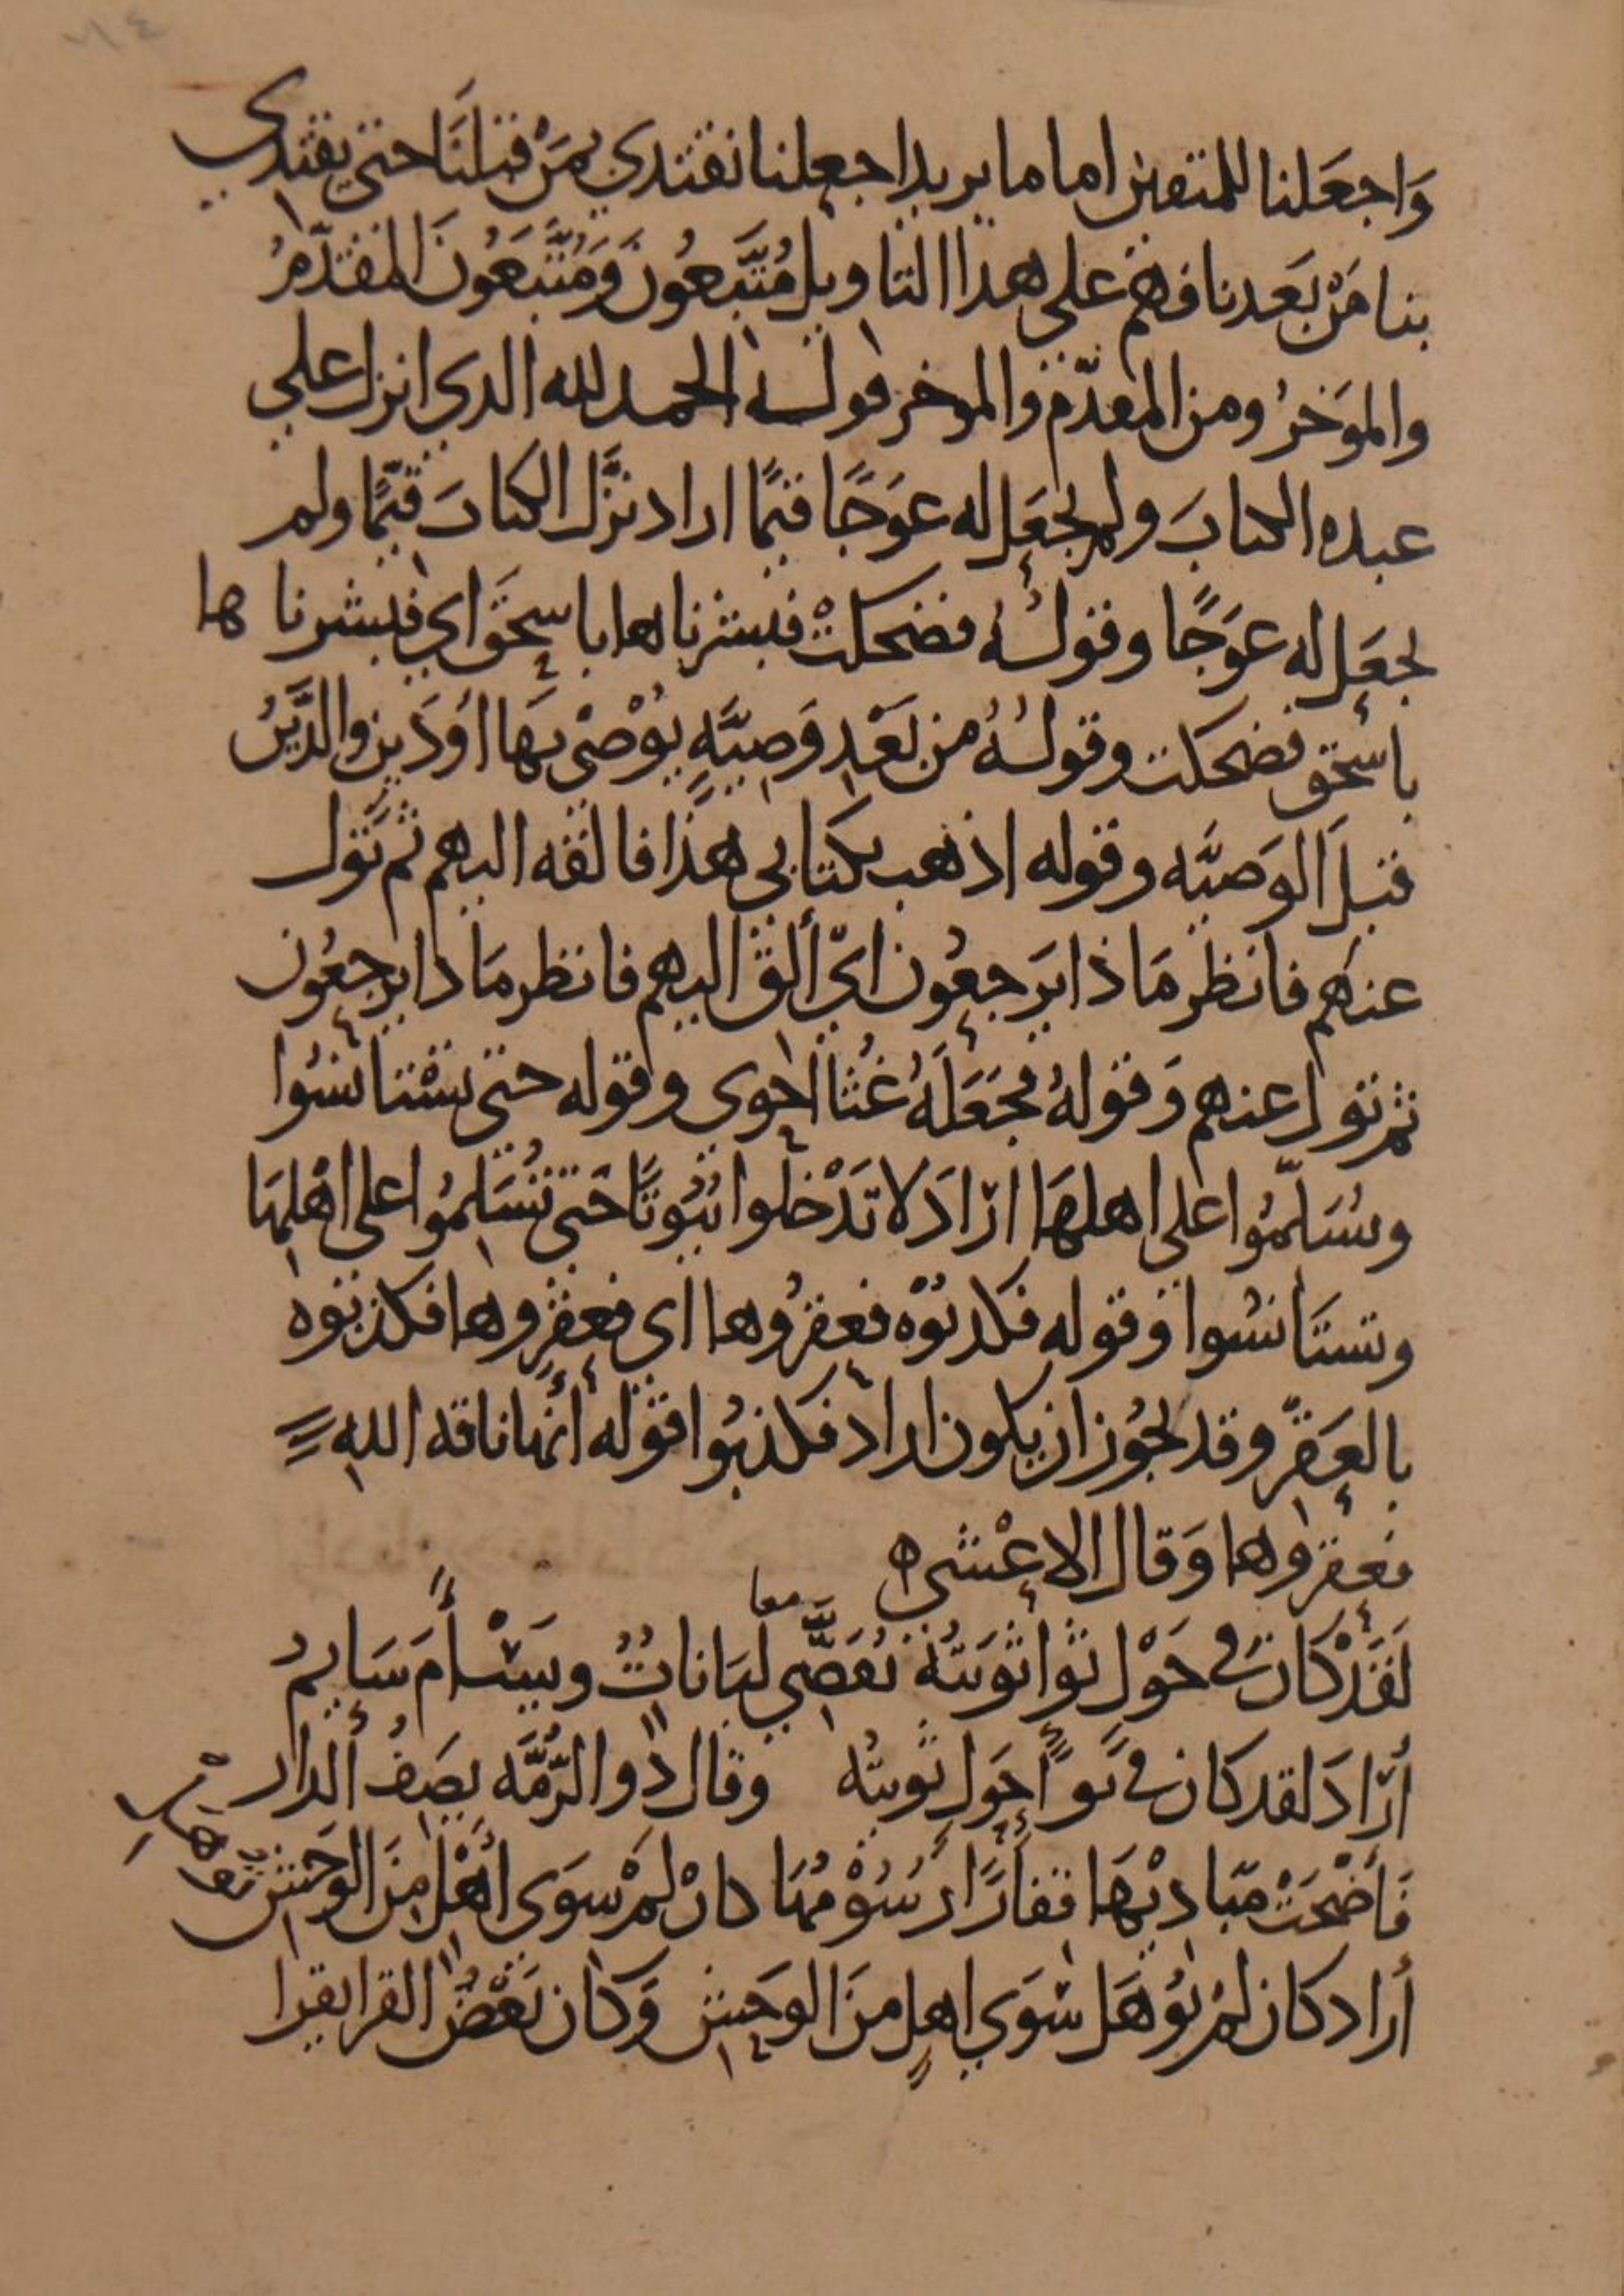 وَاجعَلنا للمتقين اماما يريد اجعلنا نقتدي بمَنْ قبلَنَا حتى يقتدي
بنا مَنْ بَعدنا فهم على هذا التاويل مُتَّبِعُونَ وَمُتَّبَعُونَ المقدّمُ
والموَخرُ ومن المقدّم والموخر قوله الحمد لله الذي انزل على
عبده الكتابَ ولم يجعَل له عوَجًا قيمًا اراد نزَّل الكتابَ قيّمًا ولم
يجعَل له عوَجًا وقولهُ فضحكتْ فبشرناها باسحَق اي فبشرناها
باسحق فضحكت وقولهُ من بَعْدِ وَصِيَّهٍ يُوْصْي بهَا اوْ دَين والدَّيْنُ
قبلَ الوَصيَّه وقوله اذهب بكتابي هذا فالقه اليهم ثم تَوَل
عنهُم فانظر مَاذا يَرجعُون ايْ ألق اليهم فانظر مَاذا يرجعُون
ثم تول عنهم وَقولهُ فجَعَلَهُ غُثا احوى وقوله حتى تسْتانسُوا
وتُسَلّمُوا على اهلهَا ارَادَ لا تَدْخلوا بُيُوتًا حَتى تُسَلِّمُوا على اهْلِهَا
وتستَانسُوا وقوله فكذبُوْه فعقرُوها اي فعقَرُوها فكذبوه
بالعَقرْ وقد يجُوز ان يكون اراد فكذبُوا قوله أنها ناقه الله
فعقروها وَقال الاعْشى ه
لَقَدْ كان في حَوْلٍ ثواٍ ثوَيتُهُ تُقَضَّى لُبَاناتٌ وَيَسْأَمَ سَايِمُ
معا
أرَادَ لقد كان في ثَواٍ حَولٍ ثويتُه وقال ذو الرُّمَّه يصِفُ الدار
فأضْحَتْ مَبَاديْهَا قفارًا رسُوْمُهَا كانْ لمْ سوَى أهْلٍ مِنَ الوَحشِ تؤهلِ
أراد كان لمْ تؤهَل سوَى اهلٍ منَ الوَحشِ وَكان بَعْضُ القرا يقرا